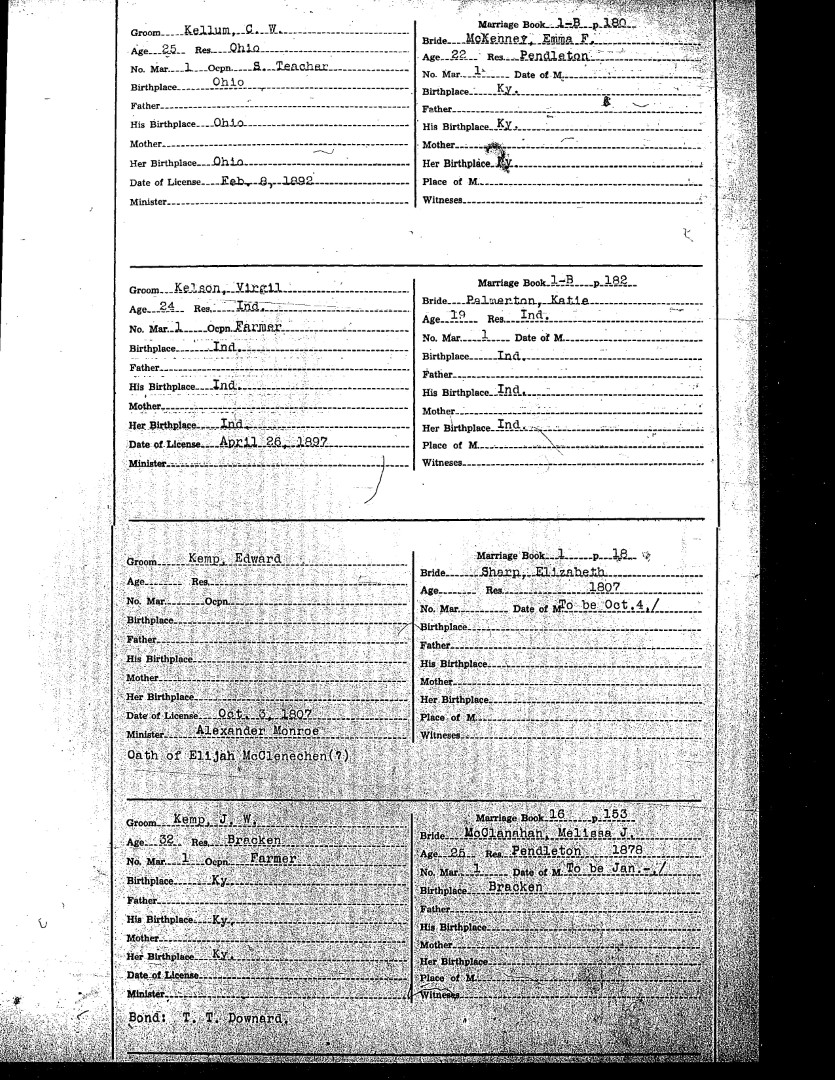 Groom Kellum, C. W.
Age 25 Res. Ohio
No. Mar. 1 Ocpn. S. Teacher
Birthplace Ohio
Father
His Birthplace Ohio
Mother
Her Birthplace Ohio
Date of License Feb. 8, 1892
Minister
Marriage Book 1-B p. 180
Bride McKenney, Emma F.
Age 22 Res. Pendleton
No. Mar. 1 Date of M.
Birthplace Ky.
Father
His Birthplace Ky.
Mother
Her Birthplace Ky
Place of M.
Witneses
Groom Kelson, Virgil
Age 24 Res. Ind.
No. Mar. 1 Ocpn. Farmer
Birthplace Ind.
Father
His Birthplace Ind.
Mother
Her Birthplace Ind.
Date of License April 26, 1897
Minister
Marriage Book 1-B p. 182
Bride Palmerton, Katie
Age 19 Res. Ind.
No. Mar. 1 Date of M.
Birthplace Ind.
Father
His Birthplace Ind.
Mother
Her Birthplace Ind.
Place of M.
Witneses
Groom Kemp, Edward
Age Res.
No. Mar. Ocpn.
Birthplace
Father
His Birthplace
Mother
Her Birthplace
Date of License Oct. 3, 1807
Minister Alexander Monroe
Oath of Elijah McClenechen(?)
Marriage Book 1 p. 18
Bride Sharp, Elizabeth
Age Res. 1807
No. Mar. Date of M. To be Oct.4,/
Birthplace
Father
His Birthplace
Mother
Her Birthplace
Place of M.
Witneses
Groom Kemp, J. W.
Age 32 Res. Bracken
No. Mar. 1 Ocpn. Farmer
Birthplace Ky.
Father
His Birthplace Ky.
Mother
Her Birthplace Ky.
Date of License
Minister
Bond: T. T. Downard.
Marriage Book 16 p. 153
Bride McClanahan, Melissa J.
Age 25 Res. Pendleton 1878
No. Mar. 1 Date of M. To be Jan.-,/
Birthplace Bracken
Father
His Birthplace
Mother
Her Birthplace
Place of M.
Witneses